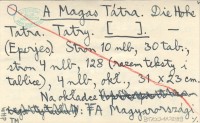 A Magas Tátra. Die Hohe
Tatra. Tatry. [ ]. —
(Eperjes). Stron 10 nlb, 30 tab.,
stron 4 nlb, 128 (razem teksty i
tablice), 4 nlb, okł., 31 x 23 cm.
Na okładce
FA Magyarországi